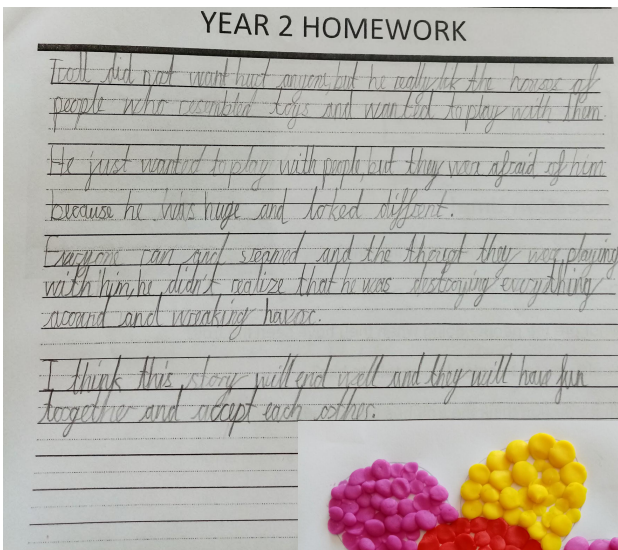 YEAR 2 HOMEWORK
Troll did not want hurt anyone, but he really lik the houses of
people who resembled toys and wanted to play with them.
He just wanted to play with people, but they was afraid of him
because he was huge and loked diffrent.
Everyone ran and sreamed and the thougt they was playing
with him, he didn't realize that he was destroying everything
around and wreaking havoc.
I think this story will end well and they will have fun
together and accept each other.